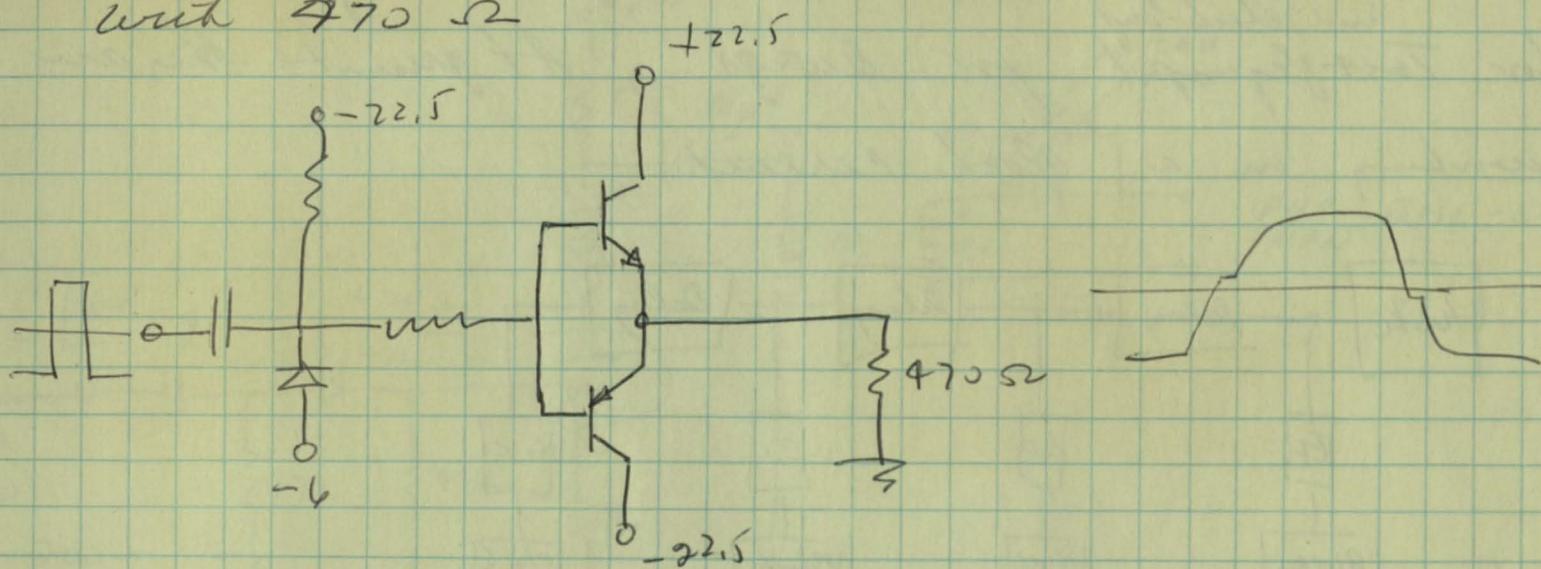 with 470 Ω
+22.5
-22.5
470 Ω
-6
-22.5